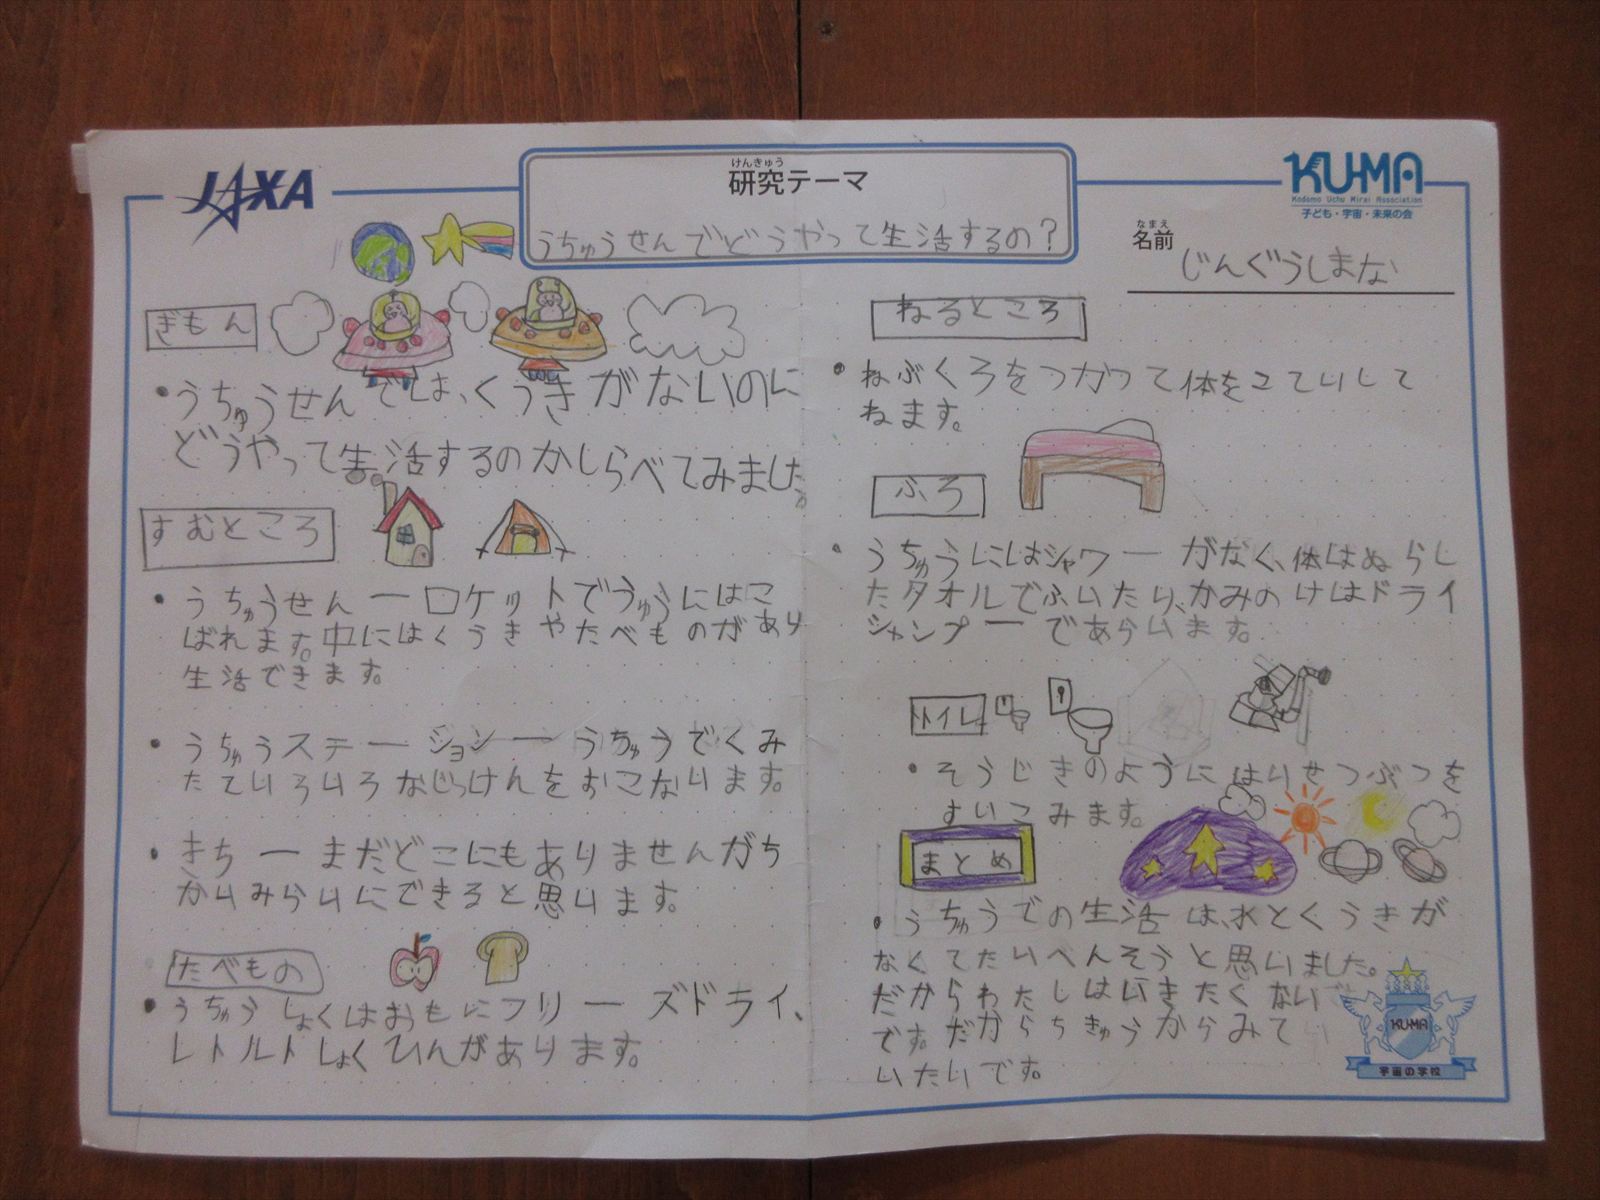 JAXA
けんきゅう
研究テーマ
うちゅうせんでどうやって生活するの?
KU-MA
Kodomo Uchu Mirai Association
子ども・宇宙・未来の会
なまえ
名前
じんぐうしまな
ぎもん
・うちゅうせんでは、くうきがないのに
どうやって生活するのかしらべてみました。
すむところ
・うちゅうせんーロケットでうちゅうにはこ
ばれます。中にはくうきやたべものがあり
生活できます。
・うちゅうステーションーうちゅうでくみ
たていろいろなじっけんをおこないます。
・きちーまだどこにもありませんがち
かいみらいにできると思います。
たべもの
・うちゅうしょくはおもにフリーズドライ、
レトルトしょくひんがあります。
ねるところ
・ねぶくろをつかって体をこていして
ねます。
ふろ
・うちゅうにはシャワーがなく、体はぬらし
たタオルでふいたり、かみのけはドライ
シャンプーであらいます。
トイレ
・そうじきのようにはいせつぶつを
すいこみます。
まとめ
・うちゅうでの生活は、水とくうきが
なくてたいへんそうと思いました。
だからわたしはいきたくない
です。だからちきゅうからみて
いたいです。
KU-MA
宇宙の学校